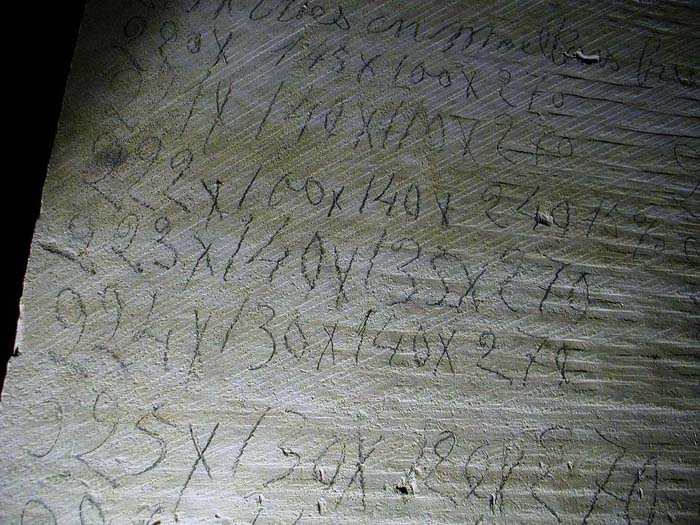 en moellons
920 x 145 x 100 x 270
921 x 140 x 110 x 270
922 x 160 x 140 x 240 15%
923 x 140 x 135 x 270
924 x 130 x 140 x 270
925 x 130 x 120 x 270